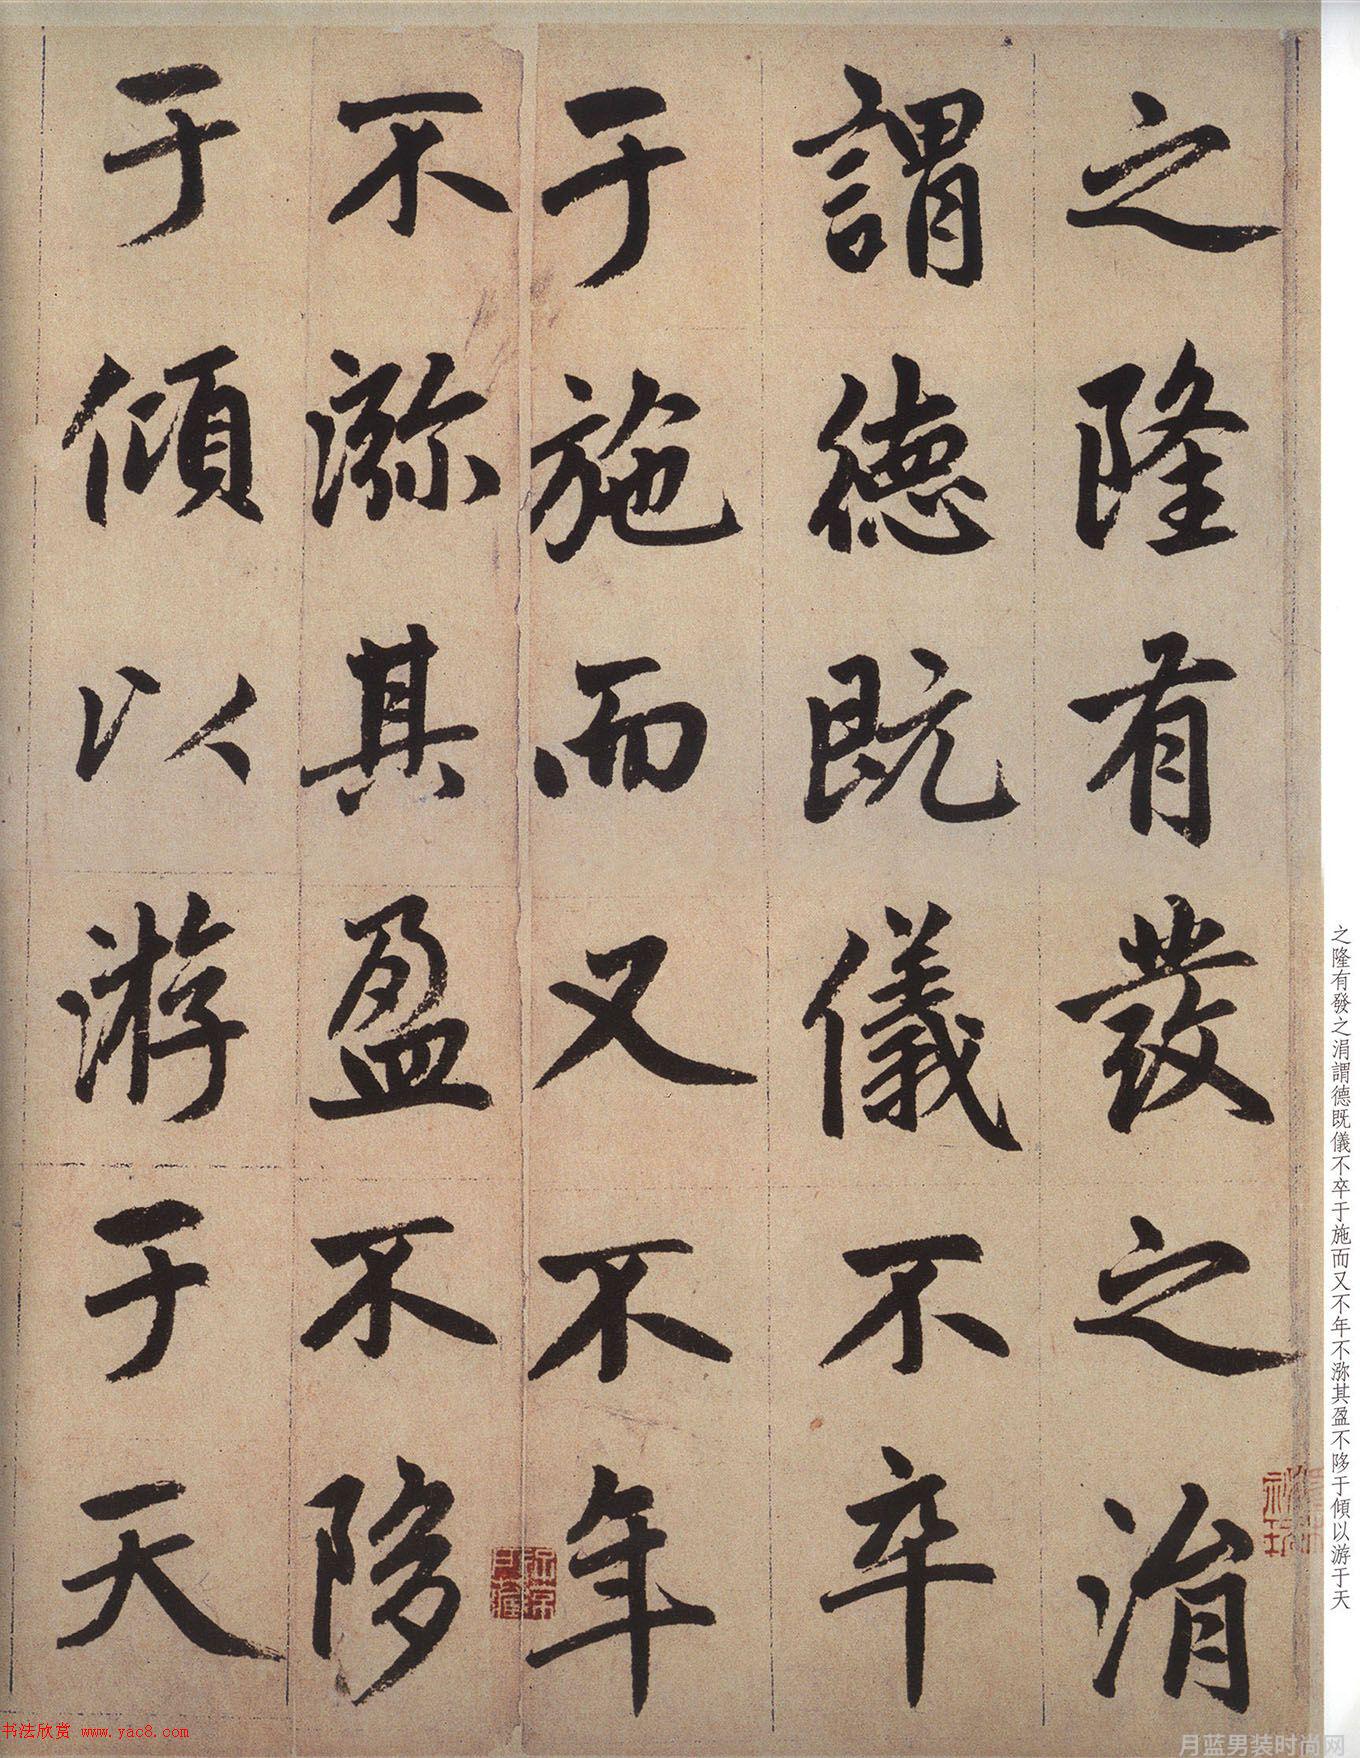 之隆有發之涓
謂德既儀不卒
于施而又不年
不泺其盈不陊
于傾以游于天
之隆有發之涓謂德既儀不卒于施而又不年不泺其盈不陊于傾以游于天
书法欣赏 www.yac8.com
月蓝男装时尚网